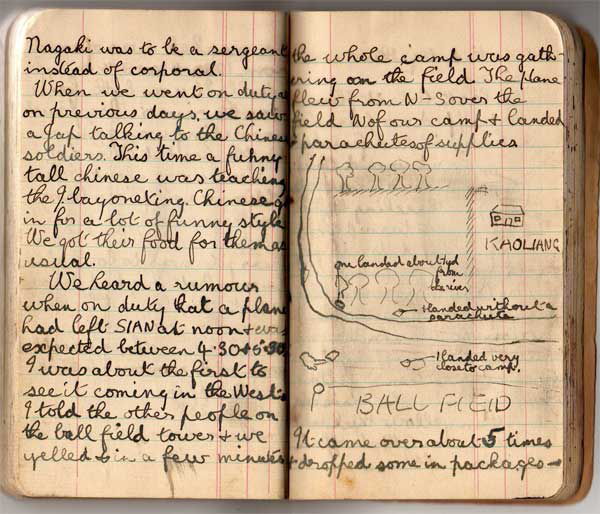 Nagaki was to be a sergeant
instead of corporal.
When we went on duty as
on previous days, we saw
a Jap talking to the Chinese
soldiers. This time a funny
tall chinese was teaching
the J. bayoneting. Chinese go
in for a lot of funny style
We got their food for them as
usual.
We heard a rumour
when on duty that a plane
had left SIAN at noon & was
expected between 4.30 & 5.30
I was about the first to
see it coming in the West.
I told the other people on
the ball field tower & we
yelled & in a few minutes
the whole camp was gath-
ering on the field The plane
flew from N-S over the
field N of our camp & landed
parachutes of supplies
KAOLIANG
one landed about 1yd
from
the river
1 landed without a
parachute
1 landed very
close to camp.
BALL FIELD
It came over about 5 times
& dropped some in packages